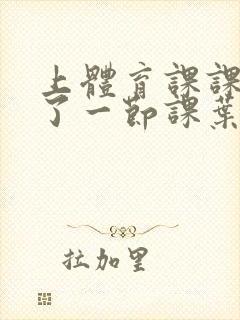 上體育課課
了一節課葉
拉加里